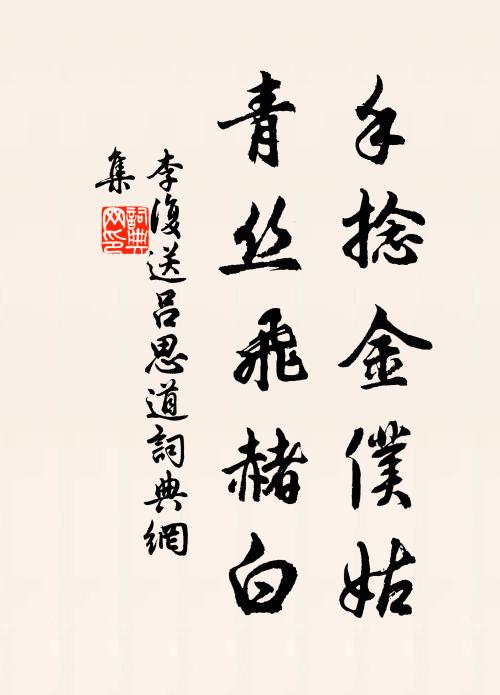 手捻金僕姑
青丝飛赭白
李復送吕思道詞典網
集
詞典网印